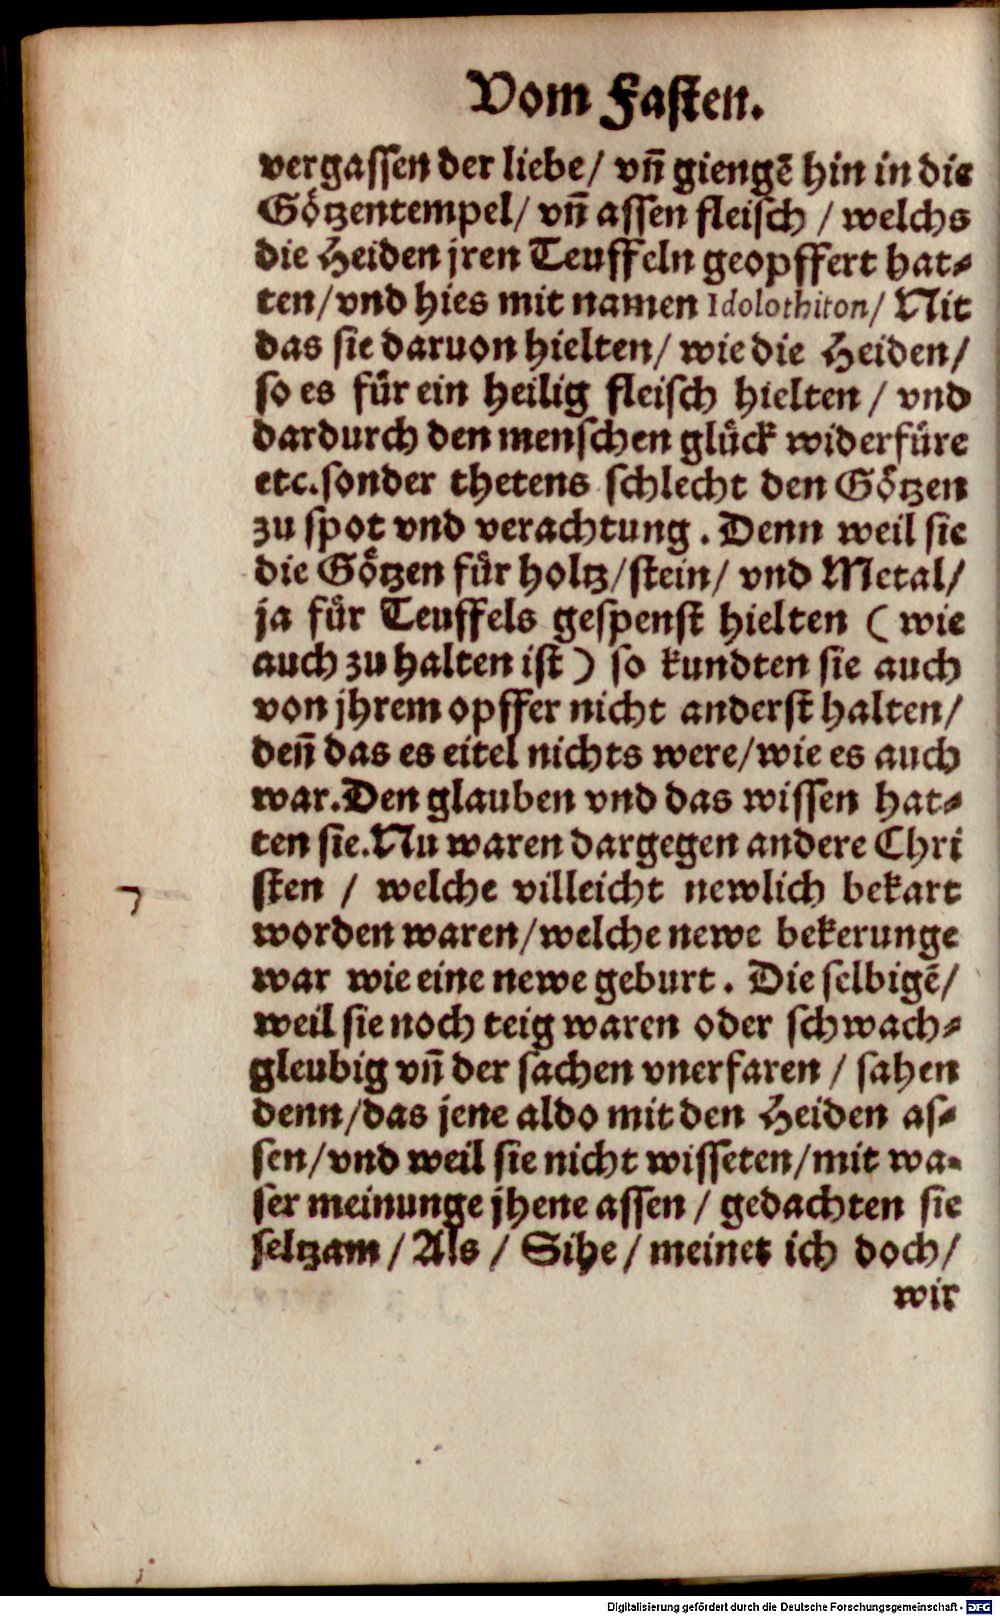 Vom Fasten.
vergassen der liebe/ vn̄ giengē hin in die
Goͤtzentempel/ vn̄ assen fleisch / welchs
die Heiden jren Teuffeln geopffert hat⸗
ten/vnd hies mit namen Idolothiton/ Nit
das sie daruon hielten/ wie die Heiden/
so es fuͤr ein heilig fleisch hielten / vnd
dardurch den menschen gluͤck widerfuͤre
etc.sonder thetens schlecht den Goͤtzen
zu spot vnd verachtung. Denn weil sie
die Goͤtzen fuͤr holtz/stein/ vnd Metal/
ja fuͤr Teuffels gespenst hielten ( wie
auch zu halten ist ) so kundten sie auch
von jhrem opffer nicht anderst halten/
den̄ das es eitel nichts were/wie es auch
war.Den glauben vnd das wissen hat⸗
ten sie.Nu waren dargegen andere Chri
sten / welche villeicht newlich bekart
worden waren/welche newe bekerunge
war wie eine newe geburt. Die selbigē/
weil sie noch teig waren oder schwach⸗
gleubig vn̄ der sachen vnerfaren / sahen
denn/das jene aldo mit den Heiden as⸗
sen/vnd weil sie nicht wisseten/mit wa⸗
ser meinunge jhene assen / gedachten sie
seltzam / Als / Sihe / meinet ich doch/
wir
Digitalisierung gefördert durch die Deutsche Forschungsgemeinschaft - DFG